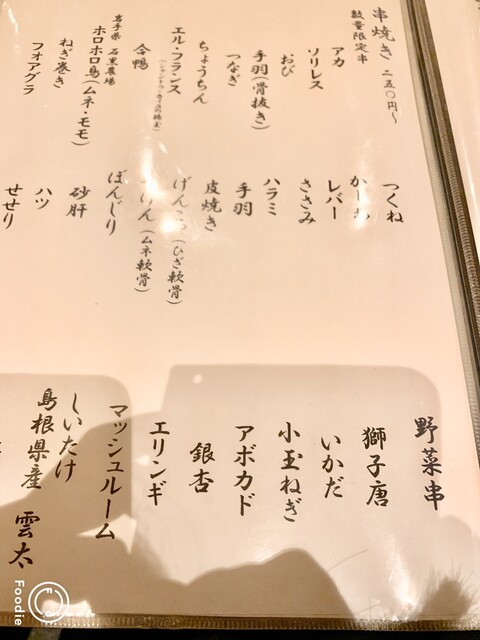 串焼き 二五〇円～
数量限定串
アカ
ソリレス
おび
手羽(骨抜き)
つなぎ
ちょうちん
エル・フランス
合鴨
岩手県 石黒農場
ホロホロ鳥(ムネ・モモ)
ねぎ巻き
フォアグラ
つくね
かしわ
レバー
ささみ
ハラミ
手羽
皮焼き
げんこつ(ひざ軟骨)
(ムネ軟骨)
ぼんじり
砂肝
ハツ
せせり
野菜串
獅子唐
いかだ
小玉ねぎ
アボカド
銀杏
エリンギ
マッシュルーム
しいたけ
島根県産 雲太
Foodie